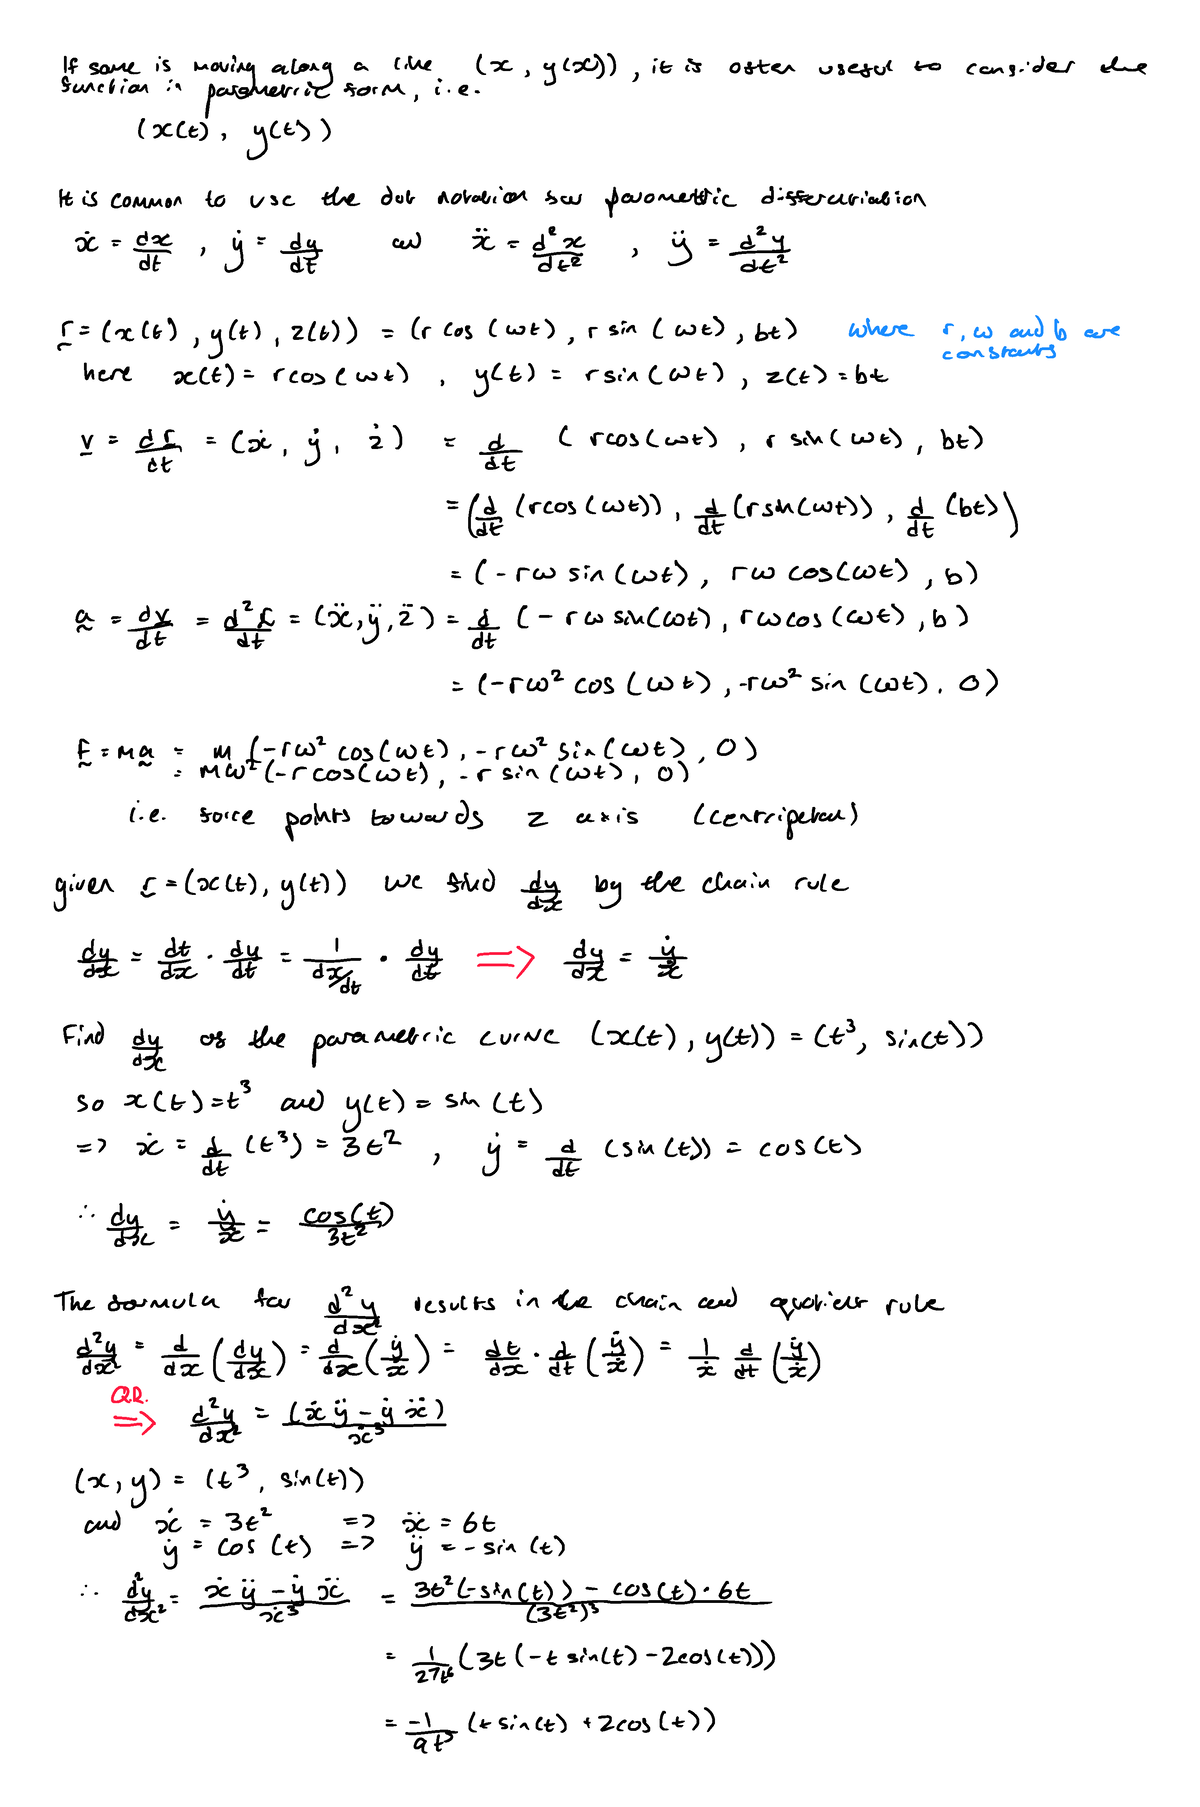 If some is moving along a line (x, y(x)), it is often useful to consider the
function in parametric form, i.e.
(x(t), y(t))
It is common to use the dot notation for parametric differentiation
ẋ = dx/dt , ẏ = dy/dt and ẍ = d²x/dt² , ÿ = d²y/dt²
r = (x(t), y(t), z(t)) = (r cos(ωt), r sin(ωt), bt) where r, ω and b are
constants
here x(t) = rcos(ωt), y(t) = rsin(ωt), z(t) = bt
v = dr/dt = (ẋ, ẏ, ż) = d/dt (rcos(ωt), r sin(ωt), bt)
= (d/dt (rcos(ωt)), d/dt (rsin(ωt)), d/dt (bt))
= (-rω sin(ωt), rω cos(ωt), b)
a = dv/dt = d²r/dt = (ẍ, ÿ, z̈) = d/dt (-rω sin(ωt), rωcos(ωt), b)
= (-rω² cos(ωt), -rω² sin(ωt), 0)
F = ma = m(-rω² cos(ωt), -rω² sin(ωt), 0)
= mω²(-rcos(ωt), -r sin(ωt), 0)
i.e. force points towards z axis (centripetal)
given r = (x(t), y(t)) we find dy/dx by the chain rule
dy/dx = dt/dx · dy/dt = 1/(dx/dt) · dy/dt => dy/dx = ẏ/ẋ
Find dy/dx of the parametric curve (x(t), y(t)) = (t³, sin(t))
so x(t) = t³ and y(t) = sin(t)
=> ẋ = d/dt (t³) = 3t² , ẏ = d/dt (sin(t)) = cos(t)
∴ dy/dx = ẏ/ẋ = cos(t)/3t²
The formula for d²y/dx² results in the chain and quotient rule
d²y/dx² = d/dx (dy/dx) = d/dx (ẏ/ẋ) = dt/dx · d/dt (ẏ/ẋ) = 1/ẋ d/dt (ẏ/ẋ)
Q.R. => d²y/dx² = (ẋÿ - ẏẍ)/ẋ³
(x, y) = (t³, sin(t))
and ẋ = 3t² => ẍ = 6t
ẏ = cos(t) => ÿ = -sin(t)
∴ d²y/dx² = (ẋÿ - ẏẍ)/ẋ³ = (3t²(-sin(t)) - cos(t)·6t)/(3t²)³
= 1/27t⁶ (3t(-t sin(t) - 2cos(t)))
= -1/9t⁵ (t sin(t) + 2cos(t))